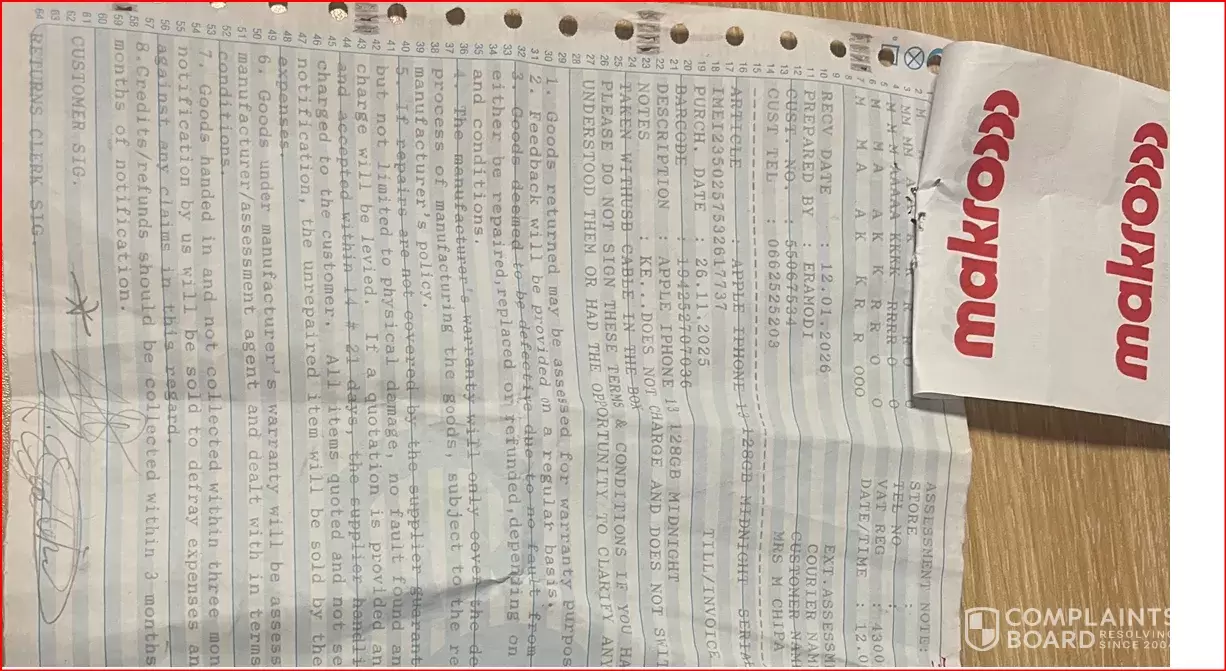 makro
makro
ASSESSMENT NOTE:
STORE :
TEL NO :
VAT REG : 4300
DATE/TIME : 12.0
RECV DATE : 12.01.2026 EXT.ASSESSM
PREPARED BY : ERAMODI COURIER NAM
CUST. NO. : 55067534 CUSTOMER NAM
CUST TEL : 0662525203 MRS M CHIPA
ARTICLE : APPLE IPHONE 13 128GB MIDNIGHT SERIAL
IMEI2350257532617737
PURCH. DATE : 26.11.2025 TILL/INVOICE
BARCODE : 194252707036
DESCRIPTION : APPLE IPHONE 13 128GB MIDNIGHT
NOTES : KE...DOES NOT CHARGE AND DOES NOT SWIT
TAKEN WITHUSB CABLE IN THE BOX
PLEASE DO NOT SIGN THESE TERMS & CONDITIONS IF YOU HA
UNDERSTOOD THEM OR HAD THE OPPORTUNITY TO CLARIFY ANY
1. Goods returned may be assessed for warranty purpos
2. Feedback will be provided on a regular basis.
3. Goods deemed to be defective due to no fault from
either be repaired,replaced or refunded,depending on
and conditions.
4. The manufacturer's warranty will only cover the de
process of manufacturing the goods, subject to the re
manufacturer's policy.
5. If repairs are not covered by the supplier guarant
but not limited to physical damage, no fault found an
charge will be levied. If a quotation is provided an
and accepted within 14 # 21 days, the supplier handli
charged to the customer. All items quoted and not se
notification, the unrepaired item will be sold by the
expenses.
6. Goods under manufacturer's warranty will be assess
manufacturer/assessment agent and dealt with in terms
conditions.
7. Goods handed in and not collected within three mon
notification by us will be sold to defray expenses an
against any claims in this regard.
8.Credits/refunds should be collected within 3 months
months of notification.
CUSTOMER SIG.
RETURNS CLERK SIG.
COMPLAINTS
BOARD RESOLVING
SINCE 2004